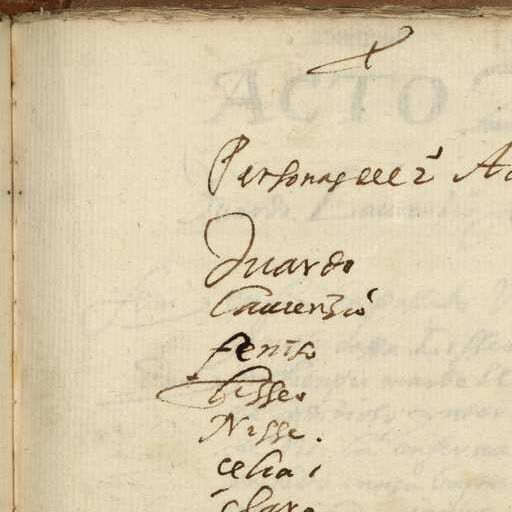 Personas del 2º Ac
Duardo
Laurenzio
feniso
Liseo
Nise.
celia
clara